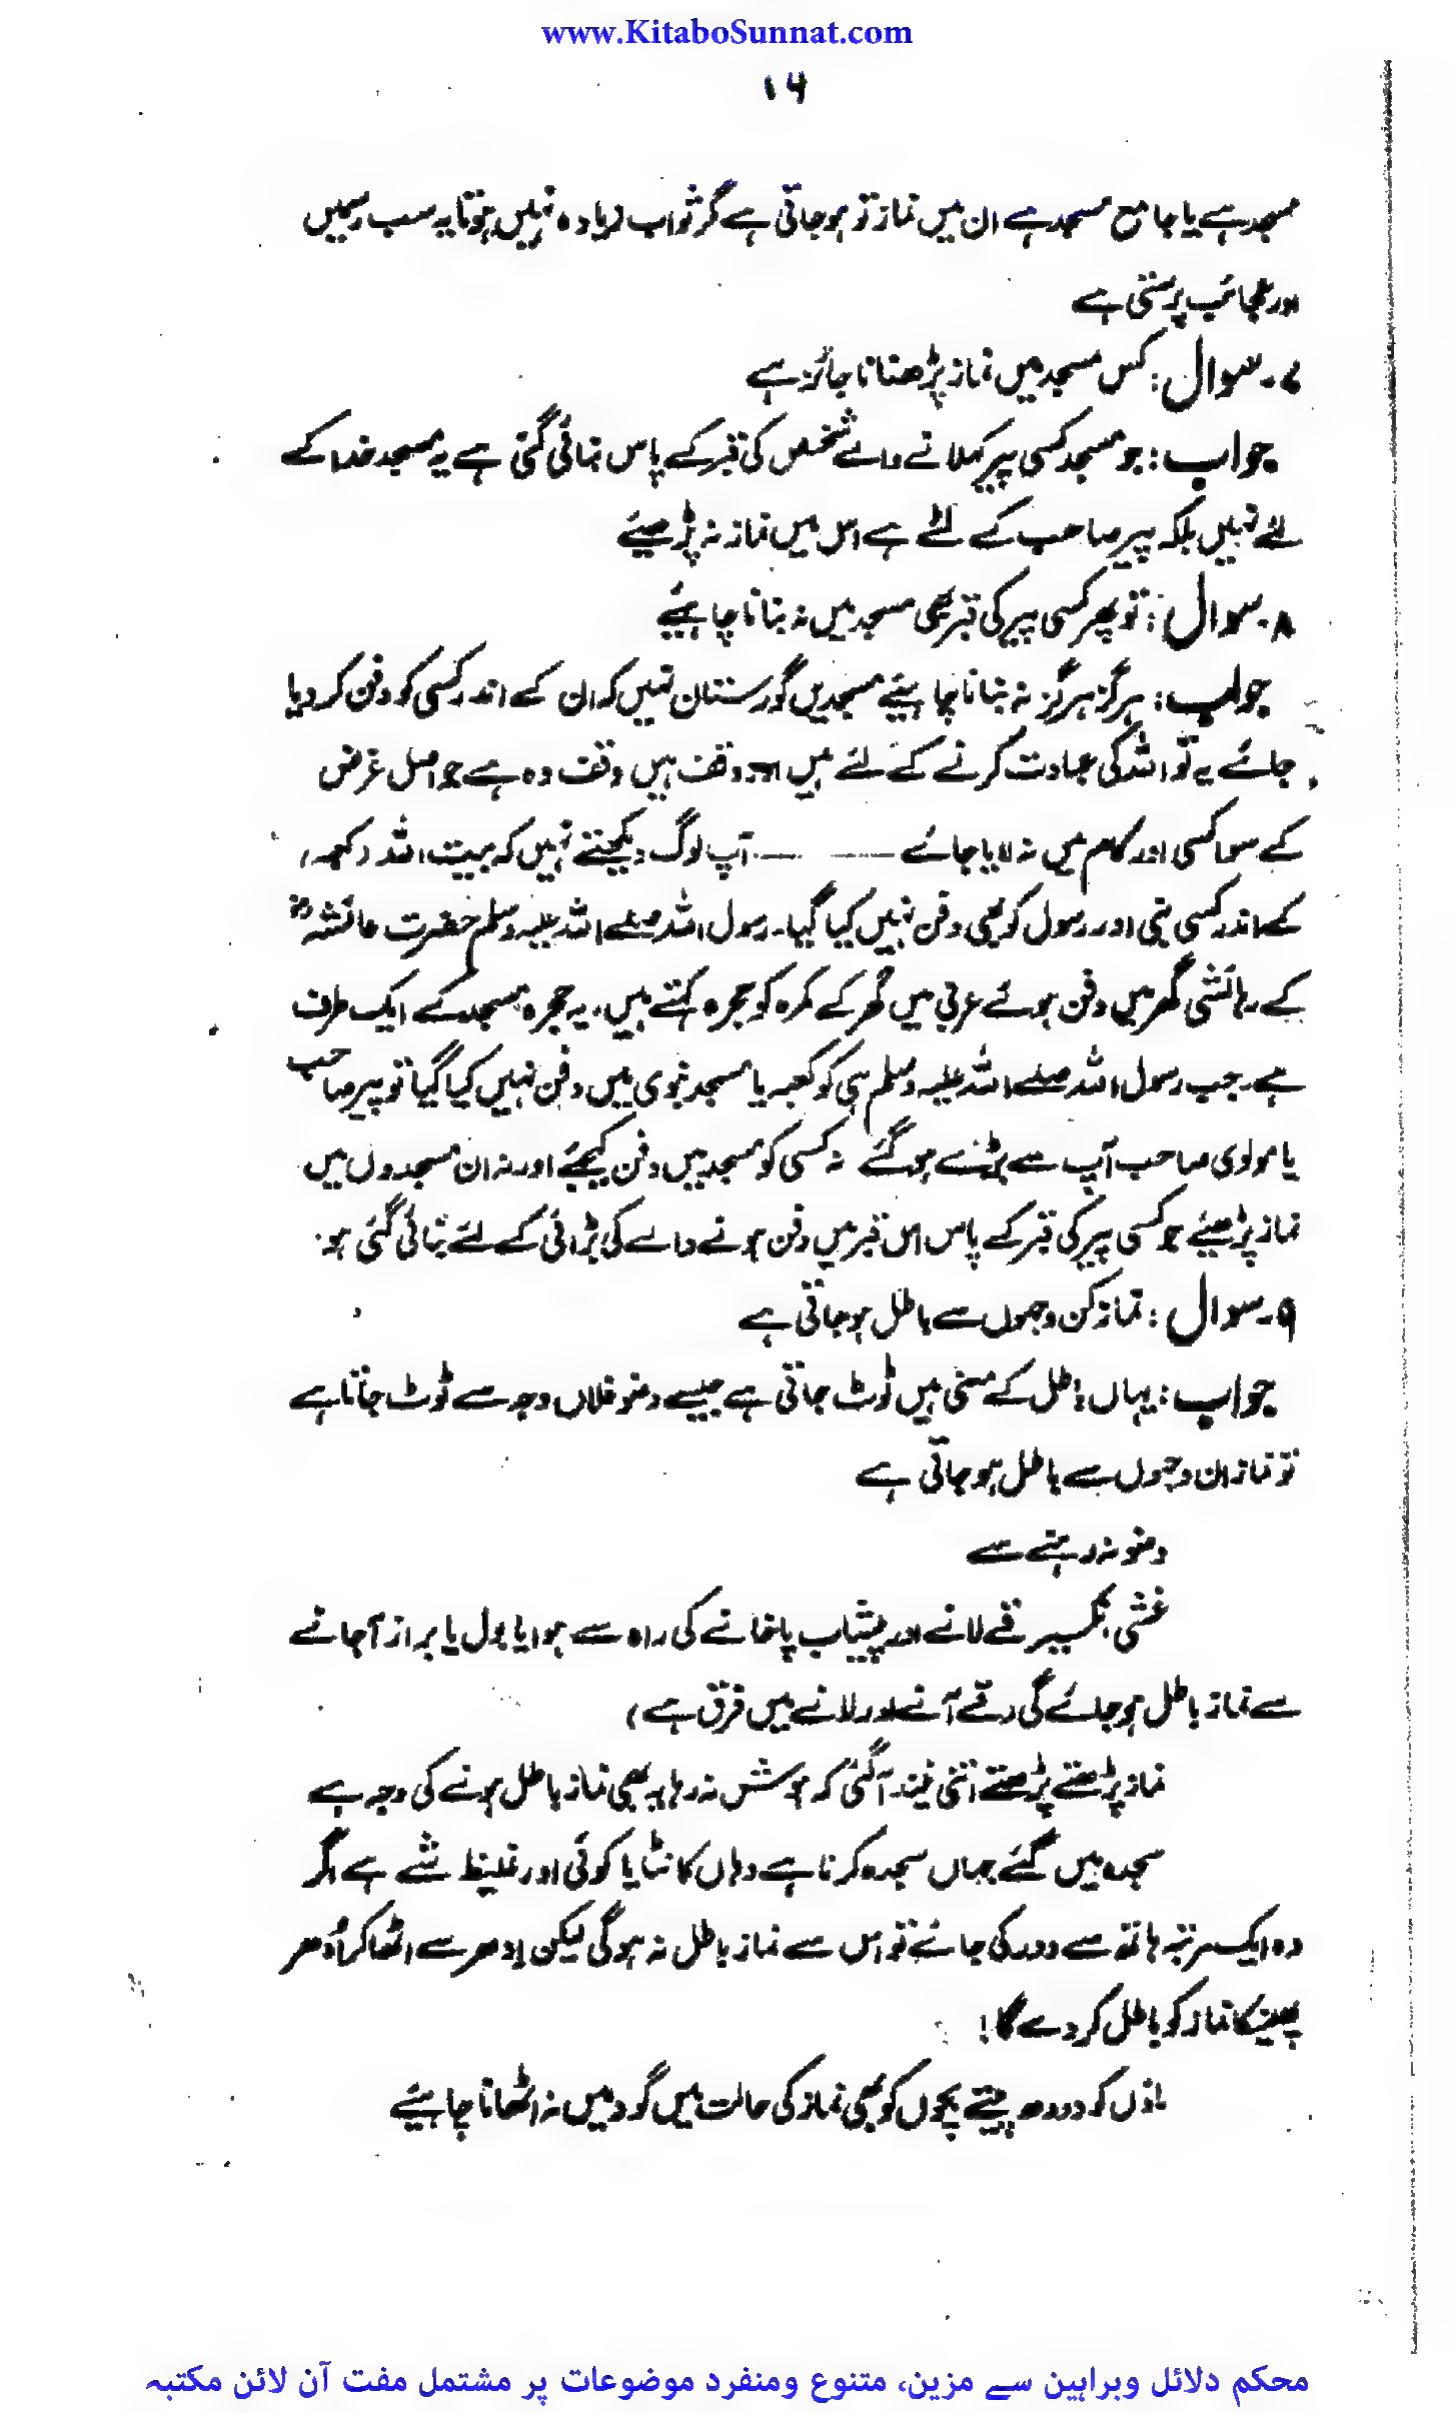 www.KitaboSunnat.com
۱۶
مسجد ہے یا جامع مسجد ہے ان میں نماز تو ہو جاتی ہے مگر ثواب زیادہ نہیں ہوتا یہ سب رسمیں
اور عجائب پرستی ہے
۷۔ سوال : کس مسجد میں نماز پڑھنا ناجائز ہے
جواب : جو مسجد کسی پیر کہلانے والے شخص کی قبر کے پاس بنائی گئی ہے یہ مسجد خدا کے
لئے نہیں بلکہ پیر صاحب کے لئے ہے اس میں نماز نہ پڑھیئے
۸۔ سوال : تو پھر کسی پیر کی قبر بھی مسجد میں نہ بنانا چاہیئے
جواب : ہرگز ہرگز نہ بنانا چاہیئے مسجدیں گورستان نہیں کہ ان کے اندر کسی کو دفن کر دیا
جائے یہ تو اللہ کی عبادت کرنے کے لئے ہیں اور وقف ہیں وقف وہ ہے جو اصل غرض
کے سوا کسی اور کام میں نہ لایا جائے ــــ ــــ آپ لوگ دیکھتے نہیں کہ بیت اللہ (کعبہ)
کے اندر کسی نبی اور رسول کو بھی دفن نہیں کیا گیا۔ رسول اللہ صلے اللہ علیہ وسلم حضرت عائشہؓ
کے رہائشی گھر میں دفن ہوئے عربی میں گھر کے کمرہ کو حجرہ کہتے ہیں، یہ حجرہ مسجد کے ایک طرف
ہے۔ جب رسول اللہ صلے اللہ علیہ وسلم ہی کو کعبہ یا مسجد نبوی میں دفن نہیں کیا گیا تو پیر صاحب
یا مولوی صاحب آپ سے بڑے ہو گئے نہ کسی کو مسجد میں دفن کیجئے اور نہ ان مسجدوں میں
نماز پڑھیئے جو کسی پیر کی قبر کے پاس اس قبر میں دفن ہونے والے کی بڑائی کے لئے بنائی گئی ہو۔
۹۔ سوال : نماز کن وجہوں سے باطل ہو جاتی ہے
جواب : یہاں باطل کے معنی ہیں ٹوٹ جاتی ہے جیسے وضو فلاں وجہ سے ٹوٹ جاتا ہے
تو نماز ان وجہوں سے باطل ہو جاتی ہے
وضو نہ رہنے سے
غشی، نکسیر قے لانے اور پیشاب پاخانے کی راہ سے ہوا یا بول یا براز آ جانے
سے نماز باطل ہو جائے گی (قے آنے اور لانے میں فرق ہے)
نماز پڑھتے پڑھتے اتنی نیند آ گئی کہ ہوش نہ رہا یہ بھی نماز باطل ہونے کی وجہ ہے
سجدہ میں گئے جہاں سجدہ کرنا ہے وہاں کانٹا یا کوئی اور غلیظ شے ہے اگر
وہ ایک مرتبہ ہاتھ سے دور کی جائے تو اس سے نماز باطل نہ ہوگی لیکن اِدھر سے اٹھا کر اُدھر
پھینکنا نماز کو باطل کر دے گا!
ماؤں کو دودھ پیتے بچوں کو بھی نماز کی حالت میں گود میں نہ اٹھانا چاہیئے
محکم دلائل وبراہین سے مزین، متنوع ومنفرد موضوعات پر مشتمل مفت آن لائن مکتبہ